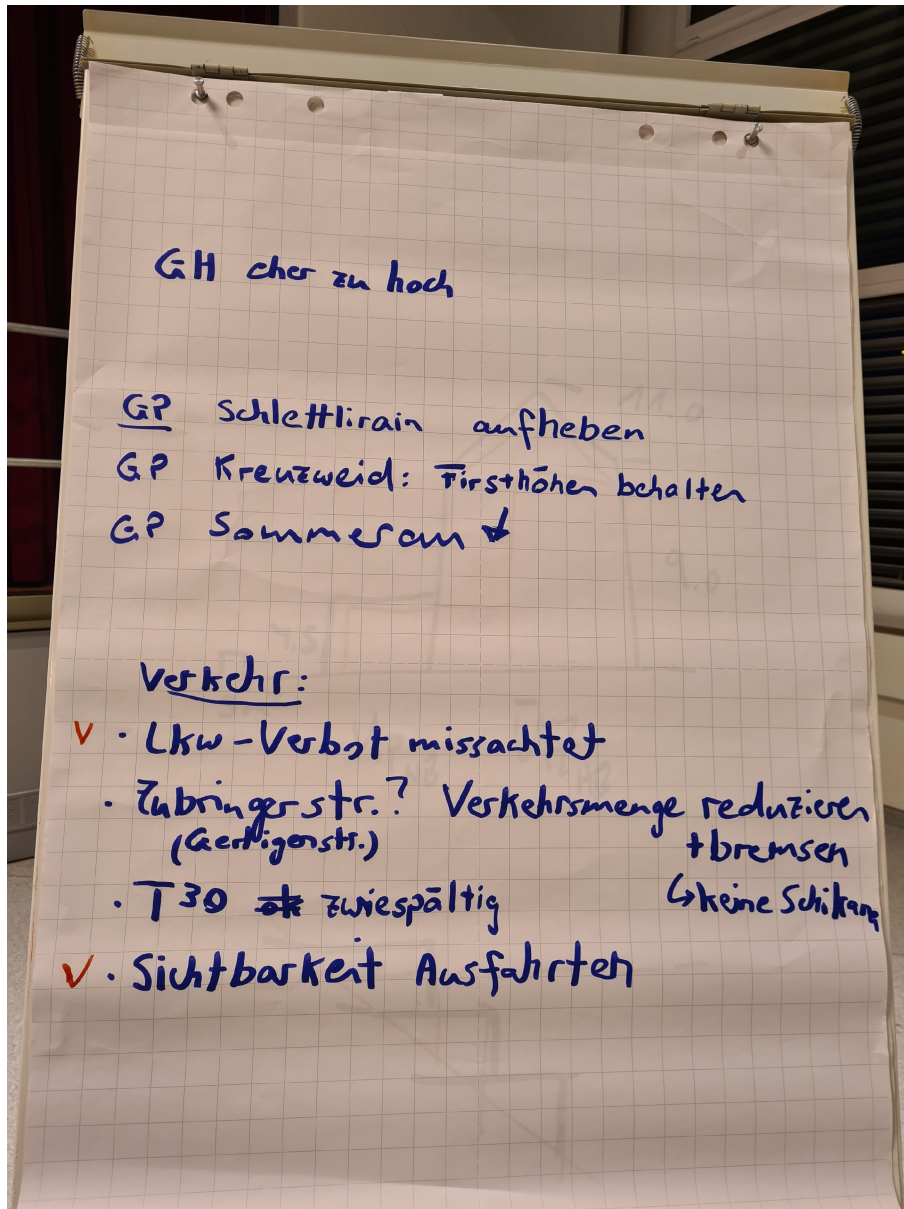 GH eher zu hoch
GP Schlettlirain aufheben
GP Kreuzweid: Firsthöhen behalten
GP Sommerau ↓
Verkehr:
V · Lkw-Verbot missachtet
· Zubringerstr.? Verkehrsmenge reduzieren
(Gertigerstr.) + bremsen
· T30 ok zwiespältig ↳ keine Schikane
V · Sichtbarkeit Ausfahrten